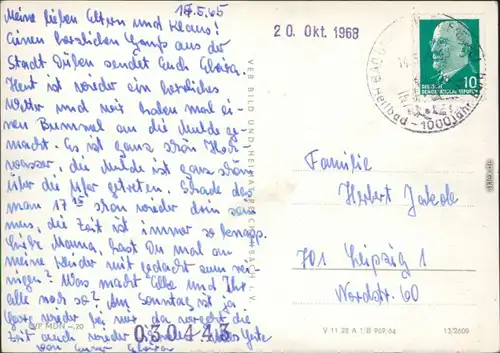 17.5.65
Meine lieben Eltern und Klaus!
Einen herzlichen Gruß aus der
Stadt Düben sendet Euch
Heut ist wieder ein herrliches
Wetter und wir haben mal ei-
nen Bummel an die Mulde ge-
macht. Es ist ganz schön Hoch-
wasser, die Mulde ist ganz schön
über die Ufer getreten. Schade das
man 17 15 schon wieder drin sein
muss, die Zeit ist immer so knapp.
Liebe Mama, hast Du mal an
meine Kleider mit gedacht zum rei-
nigen? Was macht Ihr und Ihr
alle noch so? Am Sonntag ist ja
wieder bei mir, da vergeht die
Zeit auch wieder Alles Gute
von Eurer
EVP MDN -,20
030443
VEB BILD UND HEIMAT REICHENBACH I. V.
20. Okt. 1968
BAD
Heilbad - 1000jähr.
DEUTSCHE
DEMOKRATISCHE REPUBLIK
10
Familie
Herbert Jakob
701 Leipzig 1
Nordstr. 60
V 11 28 A 1/B 969/64
13/2609